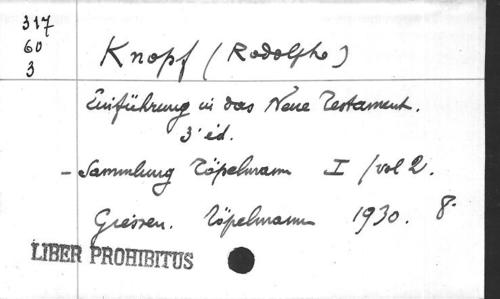 317
60
3
Knopf (Rodolphe)
Einführung in das Neue Testament.
3ᵉ éd.
- Sammlung Töpelmann I / vol 2.
Giessen. Töpelmann 1930. 8°
LIBER PROHIBITUS